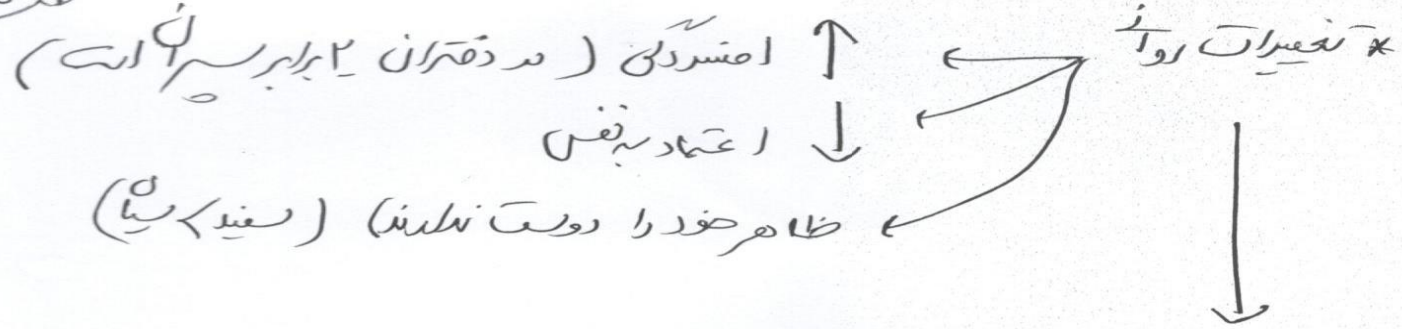 * تغییرات روانی ← ↑ افسردگی (در دختران ۲ برابر پسران است)
← ↓ اعتماد به نفس
← ظاهر خود را دوست ندارند (سفید > سیاه)